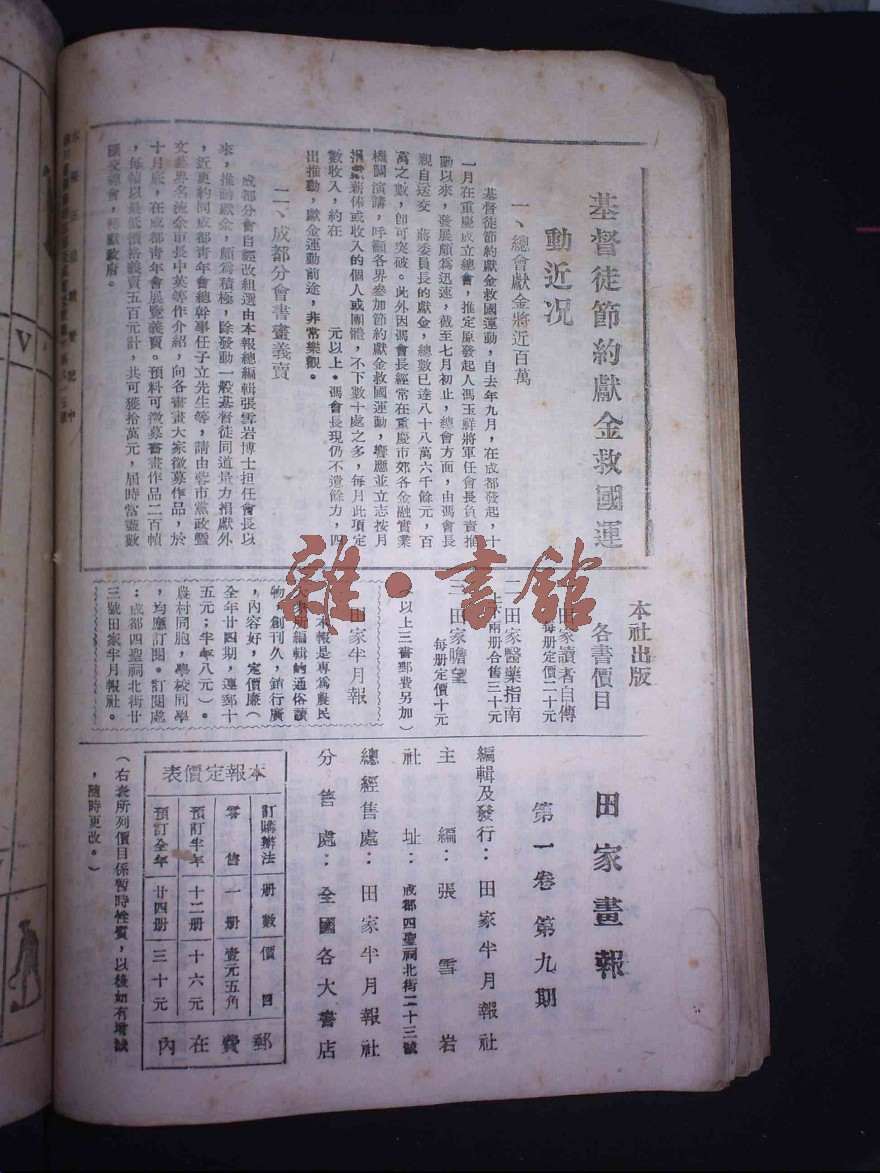 基督徒節約獻金救國運
動近況
一、總會獻金將近百萬
基督徒節約獻金救國運動，自去年九月，在成都發起，十
一月在重慶成立總會，推定原發起人馮玉祥將軍任會長負責推
動以來，發展頗為迅速，截至七月初止，總會方面，由馮會長
親自送交 蔣委員長的獻金，總數已達八十八萬六千餘元，百
萬之數，卽可突破。此外因馮會長經常在重慶市郊各金融實業
機關演講，呼籲各界參加節約獻金救國運動，響應並立志按月
捐獻薪俸或收入的個人或團體，不下數十處之多，每月此項定
數收入，約在 元以上。馮會長現仍不遺餘力，四
出推動，獻金運動前途，非常樂觀。
二、成都分會書畫義賣
成都分會自經改組選由本報總編輯張雪岩博士担任會長以
來，推動獻金，頗為積極，除發動一般基督徒同道量力捐獻外
，近更約同成都青年會總幹事任子立先生等，請由蓉市黨政暨
文藝界名流余市長中英等作介紹，向各書畫大家徵募作品，於
十月底，在成都青年會展覽義賣。預料可徵募書畫作品二百幀
，每幀以最低價格義賣五百元計，共可獲拾萬元，屆時當盡數
匯交總會，轉獻政府。
本社出版
各書價目
田家讀者自傳
每册定價二十元
二 田家醫藥指南
上下兩册合售三十元
三 田家瞻望
每册定價十元
（以上三書郵費另加）
田家半月報
本報是專為農民
大衆所編輯的通俗讀
物，創刊久，銷行廣
，內容好，定價廉（
全年廿四期，連郵十
五元；半年八元）。
農村同胞，學校同學
，均應訂閱。訂閱處
：成都四聖祠北街廿
三號田家半月報社。
田家畫報
第一卷第九期
編輯及發行：田家半月報社
主編：張雪岩
社址：成都四聖祠北街二十三號
總經售處：田家半月報社
分售處：全國各大書店
本報定價表
訂購辦法 册數 價目
零售 一册 壹元五角
預訂半年 十二册 十六元
預訂全年 廿四册 三十元
郵費在內
（右表所列價目係暫時性質，以後如有增減
，隨時更改。）
雜·書館